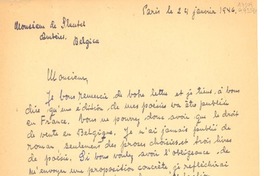 Paris le 24 janvier 1946.
Monsieur de
Anvers,
Belgica
Monsieur,
Je vous remercie de votre lettre et je tiens à vous
dire qu'une édition de mes poésies va être publiée
en France. Vous ne pouvez donc avoir que le droit
de vente en Belgique. Je n'ai jamais publié de
roman, seulement des proses choisies et trois livres
de poésie. Si vous voulez avoir l'obligeance de
m'envoyer une proposition concrète, je